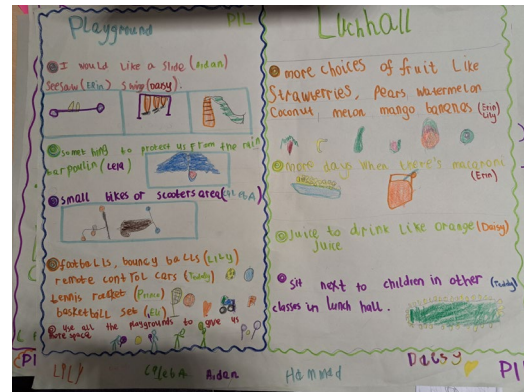 Playground PIL
I would like a slide (Aidan)
Seesaw (Erin) swing (Daisy).
something to protest us from the rain
tarpoulin (Leja)
small bikes or scooters area (CalebA)
footballs, bouncy balls (LILY)
remote control cars (Teddy)
tennis racket (Prince)
basketball set (Eli)
Use all the playgrounds to give us
more space.
LILY CalebA Aidan
Luchhall
more choices of fruit like
Strawberries, Pears, watermelon
Coconut, melon mango bananas (Erin)
Lily
more days when there's macaroni
(Erin)
Juice to drink like orange (Daisy)
juice
sit next to children in other (Teddy)
classes in lunch hall.
Hammed Daisy PI